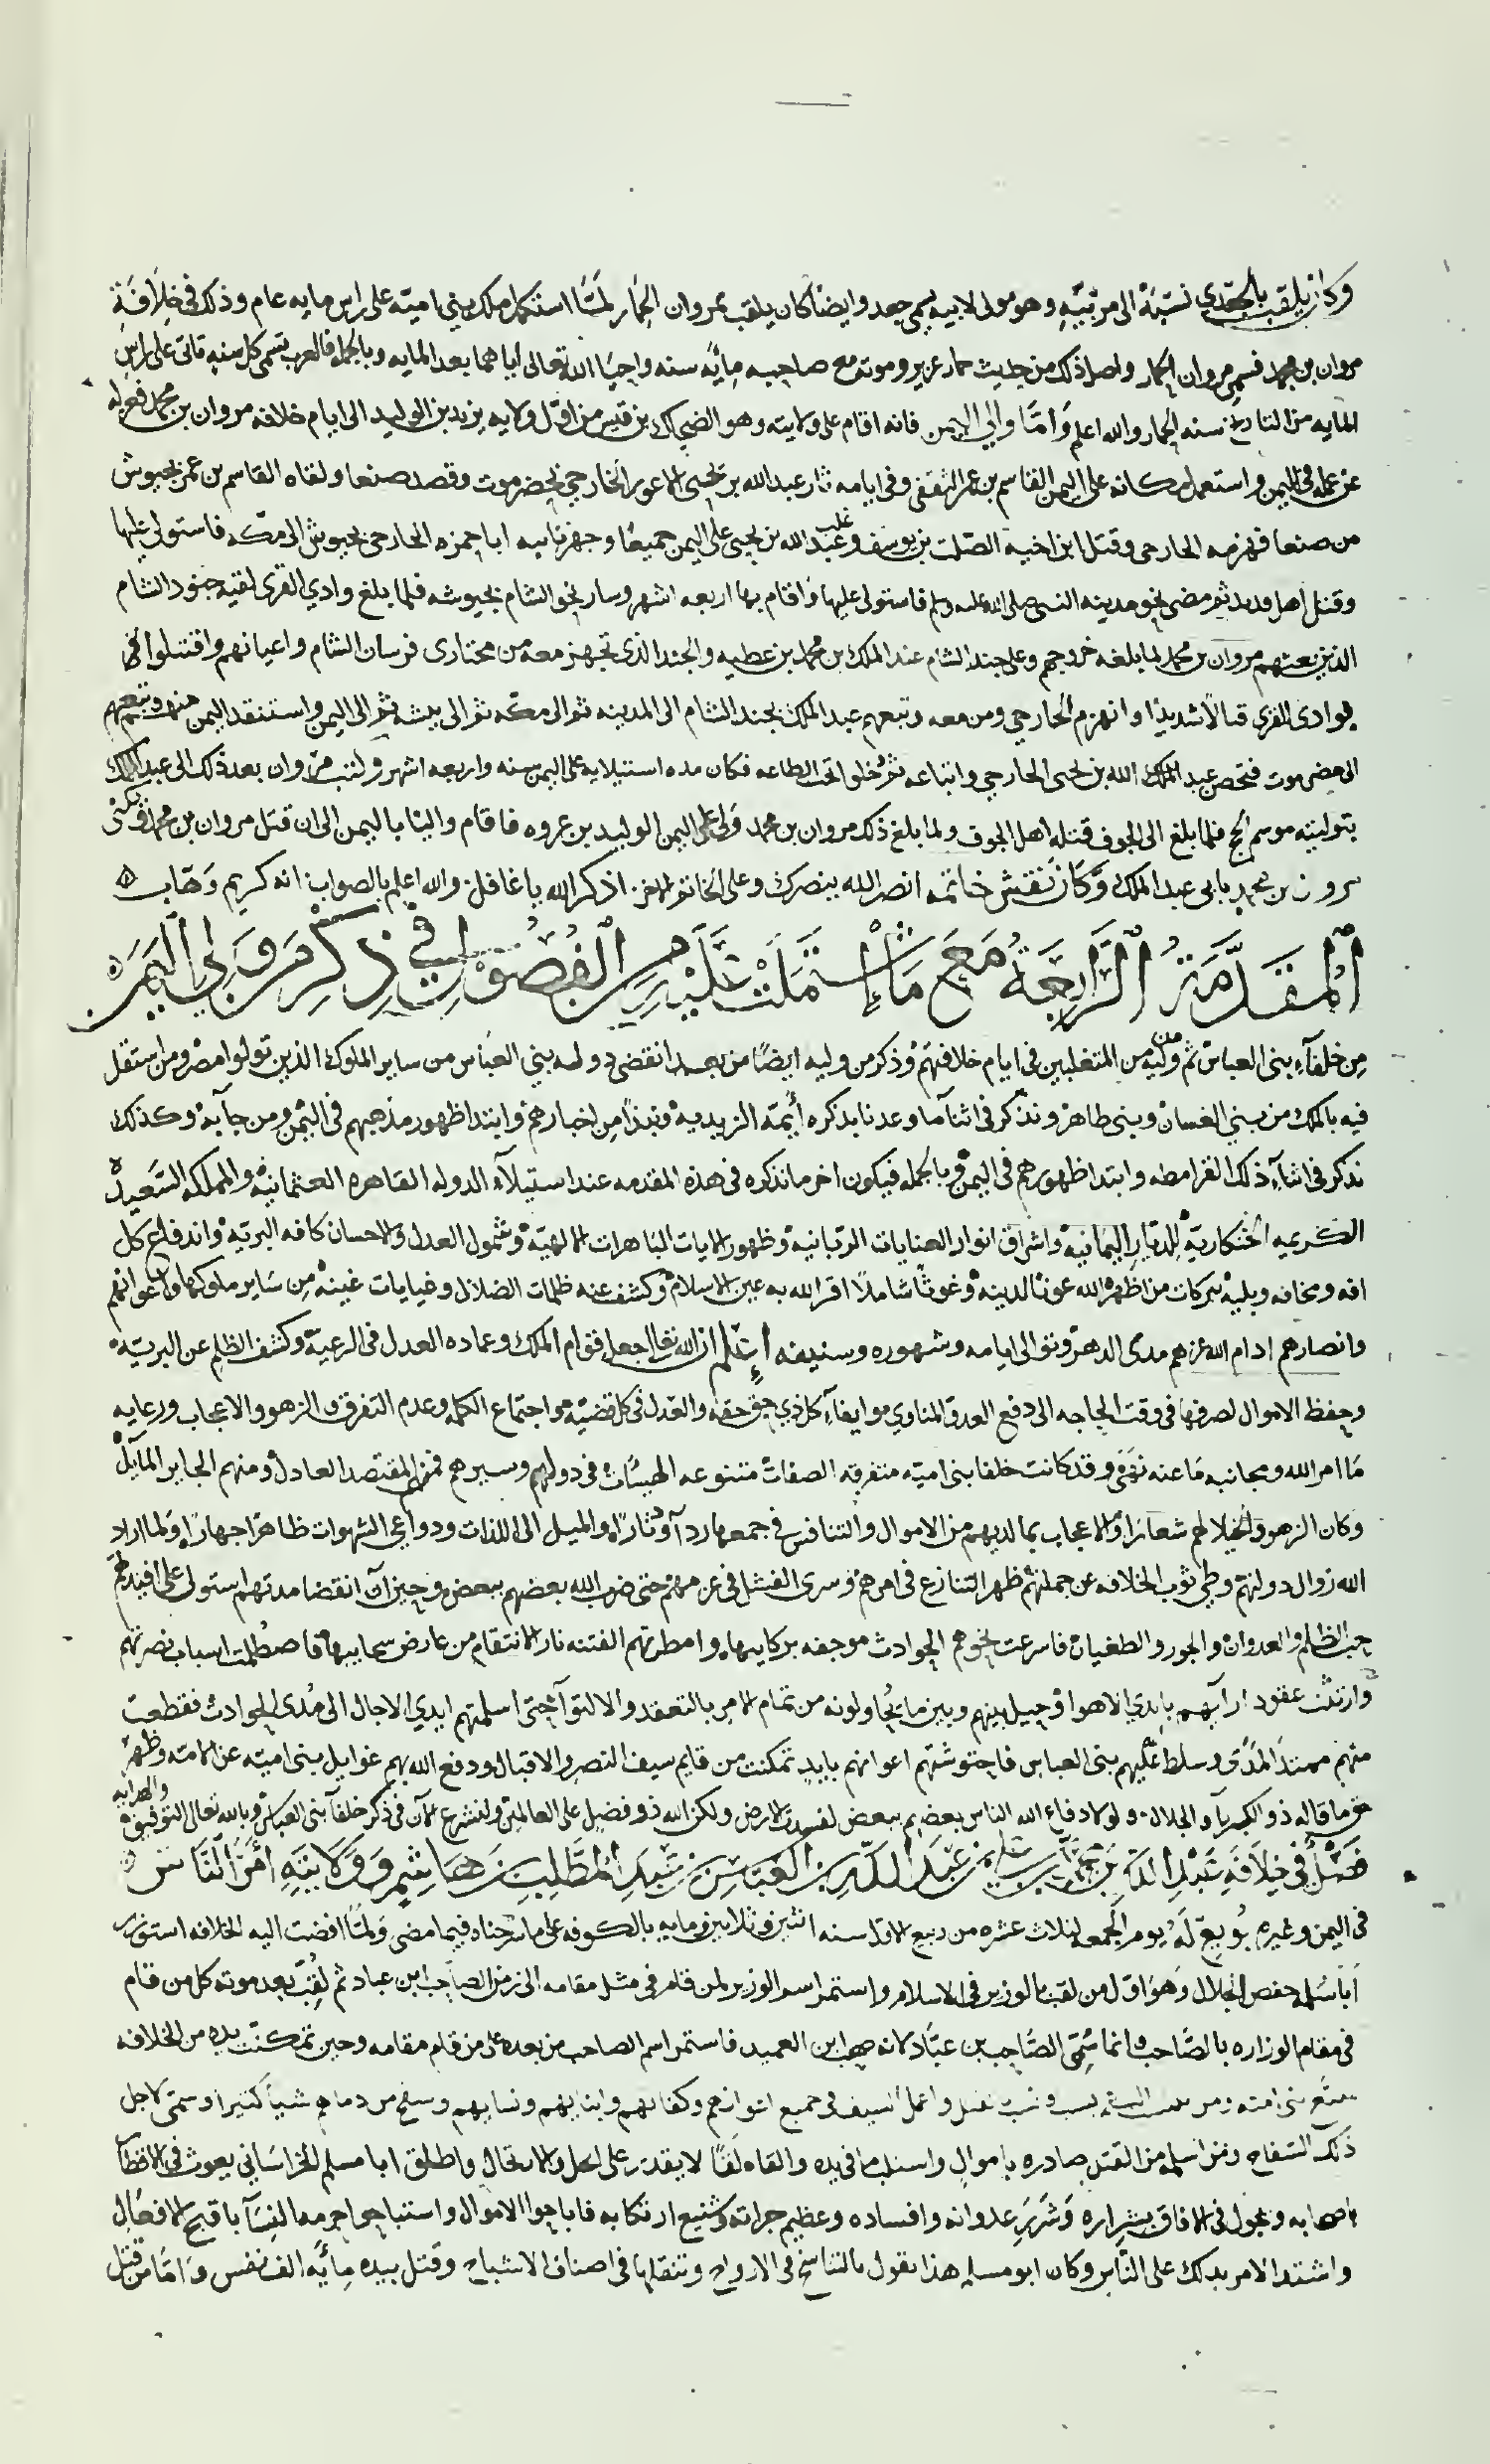 وكان يلقب بالجعدي نسبة الى مربيه وهو مولى لابيه يسمى جعد وايضا كان يلقب بمروان الحمار لما استكمل ملك بني امية على راس مايه عام وذلك في خلافة
مروان بن محمد فسمي مروان الحمار واصل ذلك من حديث حمار عزير وموته مع صاحبه مايه سنه واحيا الله تعالى اياهما بعد المايه وبالجمله فالعرب تسمى كل سنه تاتي على راس
المايه من التاريخ سنه الحمار والله اعلم وامّا والي اليمن فانه اقام على ولايته وهو الضحاك بن قيس من اول ولايه يزيد بن الوليد الى ايام خلافه مروان بن محمد فعزله
عن عمله في اليمن واستعمل مكانه على اليمن القاسم بن عمر الثقفي وفي ايامه ثار عبد الله بن يحيى الاعور الخارجي بحضرموت وقصد صنعا ولقاه القاسم بن عمر بجيوش
من صنعا فهزمه الخارجي وقتل ابن اخيه الصلت بن يوسف وغلب عبد الله بن يحيى على اليمن جميعا وجهز نايبه ابا حمزه الخارجي بجيوش الى مكه فاستولى عليها
وقتل اهل قديد ثم مضى نحو مدينه النبي صلى الله عليه وسلم فاستولى عليها واقام بها اربعه اشهر وسار نحو الشام بجيوشه فلما بلغ وادي القرى لقيه جنود الشام
الذين بعثهم مروان بن محمد لما بلغه خروجهم وعلى جند الشام عبد الملك بن محمد بن عطيه والجند الذي تجهز معه من مختارى فرسان الشام واعيانهم واقتتلوا
بوادى القرى قتالا شديدا وانهزم الخارجي ومن معه وتبعهم عبد الملك بجند الشام الى المدينه ثم الى مكه ثم الى بيشه ثم الى اليمن واستنقذ اليمن منهم وتبعهم
الى حضرموت عبد الله بن يحيى الخارجي واتباعه ثم دخلوا تحت الطاعه فكان مده استيلايه على اليمن سنه واربعه اشهر وكتب مروان بعد ذلك الى عبد الملك
بتوليته موسم الحج فلما بلغ الى الجوف قتله اهل الجوف ولما بلغ ذلك مروان بن محمد ولى على اليمن الوليد بن عروه فاقام واليا باليمن الى ان قتل مروان بن محمد ويكنى
مروان بن محمد بابي عبد الملك وكان نقش خاتمه انصر الله ينصرك وعلى الخاتم الاخر اذكر الله يا غافل والله اعلم بالصواب انه كريم وهاب
المقدمة الرابعة مع ما اشتملت عليه من الفصول في ذكر من ولي اليمن
من خلفاء بني العباس ثم من وليه من المتغلبين في ايام خلافتهم وذكر من وليه ايضا من بعد انقضى دوله بني العباس من ساير الملوك الذين تولوا مصر ومن استقل
فيه بالملك من بني الغسان وبني طاهر ونذكر في اثنا ما وعدنا بذكره أيمة الزيدية ونبذا من اخبارهم وابتدا ظهور مذهبهم في اليمن ومن جاء به وكذلك
نذكر في اثناء ذلك القرامطه وابتدا ظهورهم في اليمن وبالجمله فيكون اخر ما نذكره في هذه المقدمه عند استيلاء الدوله القاهره العثمانية والمملكه السعيده
الكريمه الخنكارية للديار اليمانية واشراق انوار العنايات الربانية وظهور الايات الباهرات الالهية وشمول العدل والاحسان كافه البرية واندفاع كل
افه ومخافه وبلية ببركات من اظهره الله عونا لدينه وغوثا شاملا اقر الله به عين الاسلام وكشف عنه ظلمات الضلال وغيابات غيه من ساير ملوكها واعوانهم
وانصارهم ادام الله عزهم مدى الدهر وتوالى ايامه وشهوره وسنيه اعلم ان الله تعالى جعل قوام الملك وعماده العدل في الرعية وكشف الظلم عن البرية
وحفظ الاموال لصرفها في وقت الحاجه الى دفع العدو المناوي وايفاء كل ذي حق حقه والعدل في كل قضية واجتماع الكلمه وعدم التفرق والزهو والاعجاب ورعايه
ما امر الله ومجانبه ما عنه نهى وقد كانت خلفا بني امية متفرقه الصفات متنوعه الهيئات في دولهم وسيرهم فمنهم المقتصد العادل ومنهم الجاير المايل
وكان الزهو والخيلا لهم شعارا والاعجاب بما لديهم من الاموال والتنافس في جمعها رداء ودثارا والميل الى اللذات ودواعي الشهوات ظاهرا جهارا ولما اراد
الله زوال دولتهم وطي ثوب الخلافه عن جملتهم ظهر التنازع في امرهم وسرى الفشل في عزمهم حتى ضرب الله بعضهم ببعض وحين ان انقضا مدتهم استولى على افيدتهم
حب الظلم والعدوان والجور والطغيان فاسرعت نحوهم الحوادث موجفه بركايبها وامطرتهم الفتنه نار الانتقام من عارض سحايبها اسباب نصرتهم
وارتثت عقود ارايهم بايدي الاهوا وحيل بينهم وبين ما يحاولونه من تمام الامر بالتعقد والالتواء حتى اسلمتهم ايدي الاجال الى مُدى الحوادث فقطعت
منهم ممتد المدى وسلط عليهم بني العباس فاحتوشتهم اعوانهم بايد تمكنت من قايم سيف النصر والاقبال ودفع الله بهم غوايل بني امية عن الامة وظهر
حق ما قاله ذو الكبرياء والجلال ولولا دفاع الله الناس بعضهم ببعض لفسدت الارض ولكن الله ذو فضل على العالمين ولنشرع الان في ذكر خلفاء بني العباس وبالله تعالى التوفيق والهدايه
فصل في خلافة عبد الله بن محمد بن علي بن عبد الله بن العباس بن عبد المطلب بن هاشم وولايته امر الناس
في اليمن وغيره بويع له يوم الجمعه لثلاث عشره من ربيع الاول سنه اثنين وثلاثين ومايه بالكوفه على ما شرحناه فيما مضى ولما افضت اليه الخلافه استوزر
ابا سلمه حفص الخلال وهو اول من لقب بالوزير في الاسلام واستمر اسم الوزير لمن قام في مثل مقامه الى زمن الصاحب ابن عباد ثم لقب بعد موته كل من قام
في مقام الوزاره بالصاحب وانما سُمّى الصاحب بن عباد لانه صحب ابن العميد فاستمر اسم الصاحب من بعده على من قام مقامه وحين تمكنت يده من الخلافه
تتبع بني اميه واعمل السيف في جميع اعوانهم وكفاتهم وابنايهم ونسايهم وسفح من دمايهم شيا كثيرا وسمي لاجل
ذلك السفاح ومن اسلمه من القتل صادره باموال واستلب ما في يده والقاه لقا لا يقدر على الحل والارتحال واطلق ابا مسلم الخراساني يعوث في الاقطار
اصحابه ويجول في الافاق بشراره وشرر عدوانه وافساده وعظيم جراته وشنيع ارتكابه فاباحوا الاموال واستباحوا حرمه النساء باقبح الافعال
واشتد الامر بذلك على الناس وكان ابو مسلم هذا يقول بالتناسخ في الارواح وتنقلها في اصناف الاشباح وقتل بيده مايه الف نفس واما من قتل